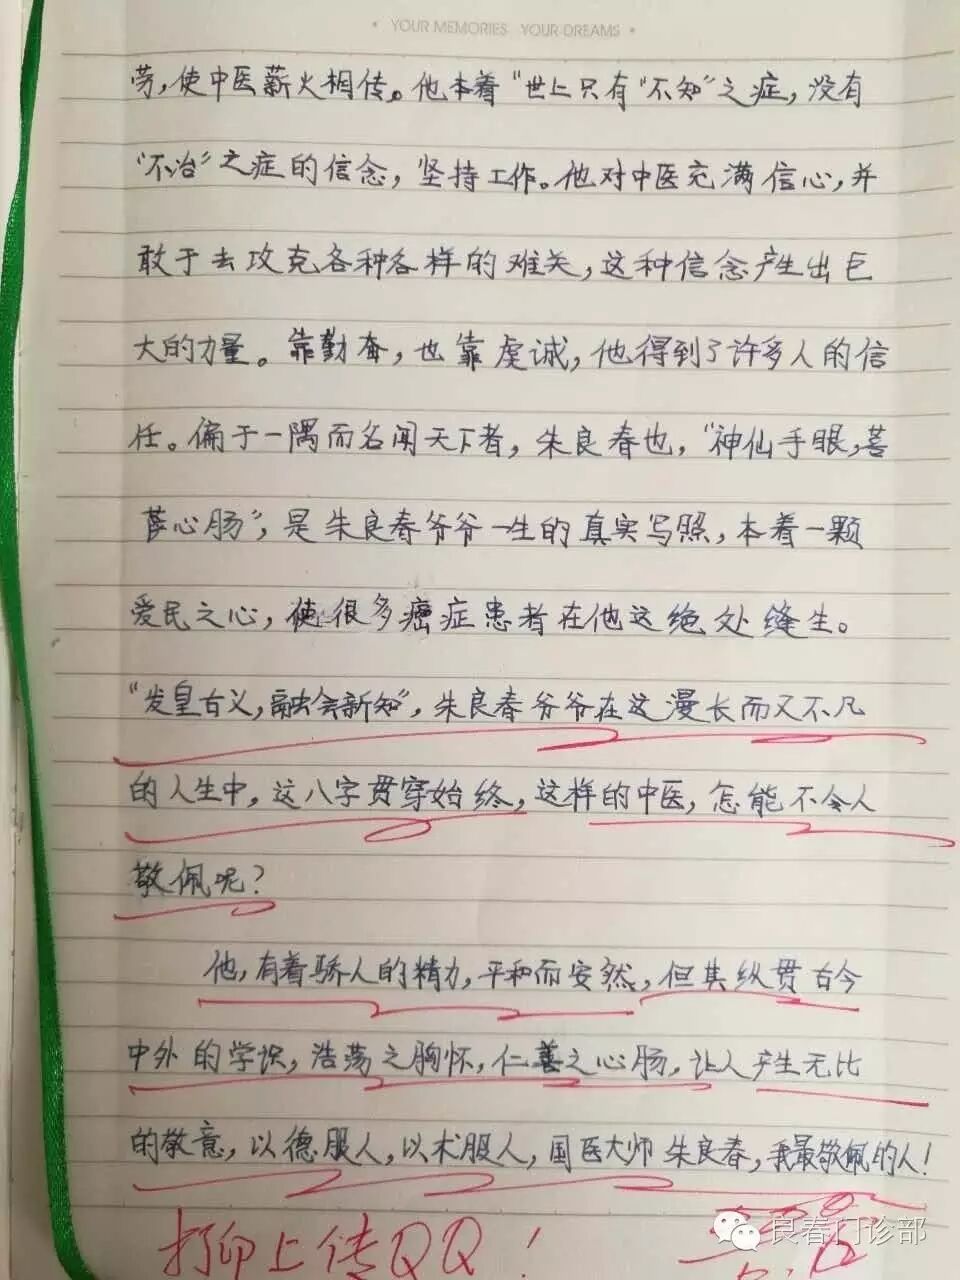 • YOUR MEMORIES YOUR DREAMS •
劳，使中医薪火相传。他本着“世上只有“不知”之症，没有
“不治”之症的信念，坚持工作。他对中医充满信心，并
敢于去攻克各种各样的难关，这种信念产生出巨
大的力量。靠勤奋，也靠虔诚，他得到了许多人的信
任。偏于一隅而名闻天下者，朱良春也，“神仙手眼，菩
萨心肠”，是朱良春爷爷一生的真实写照，本着一颗
爱民之心，使很多癌症患者在他这绝处缝生。
“发皇古义，融会新知”，朱良春爷爷在这漫长而又不凡
的人生中，这八字贯穿始终，这样的中医，怎能不令人
敬佩呢？
他，有着骄人的精力，平和而安然，但其纵贯古今
中外的学识，浩荡之胸怀，仁善之心肠，让人产生无比
的敬意，以德服人，以术服人，国医大师朱良春，我最敬佩的人！
打印上传QQ！
良春门诊部